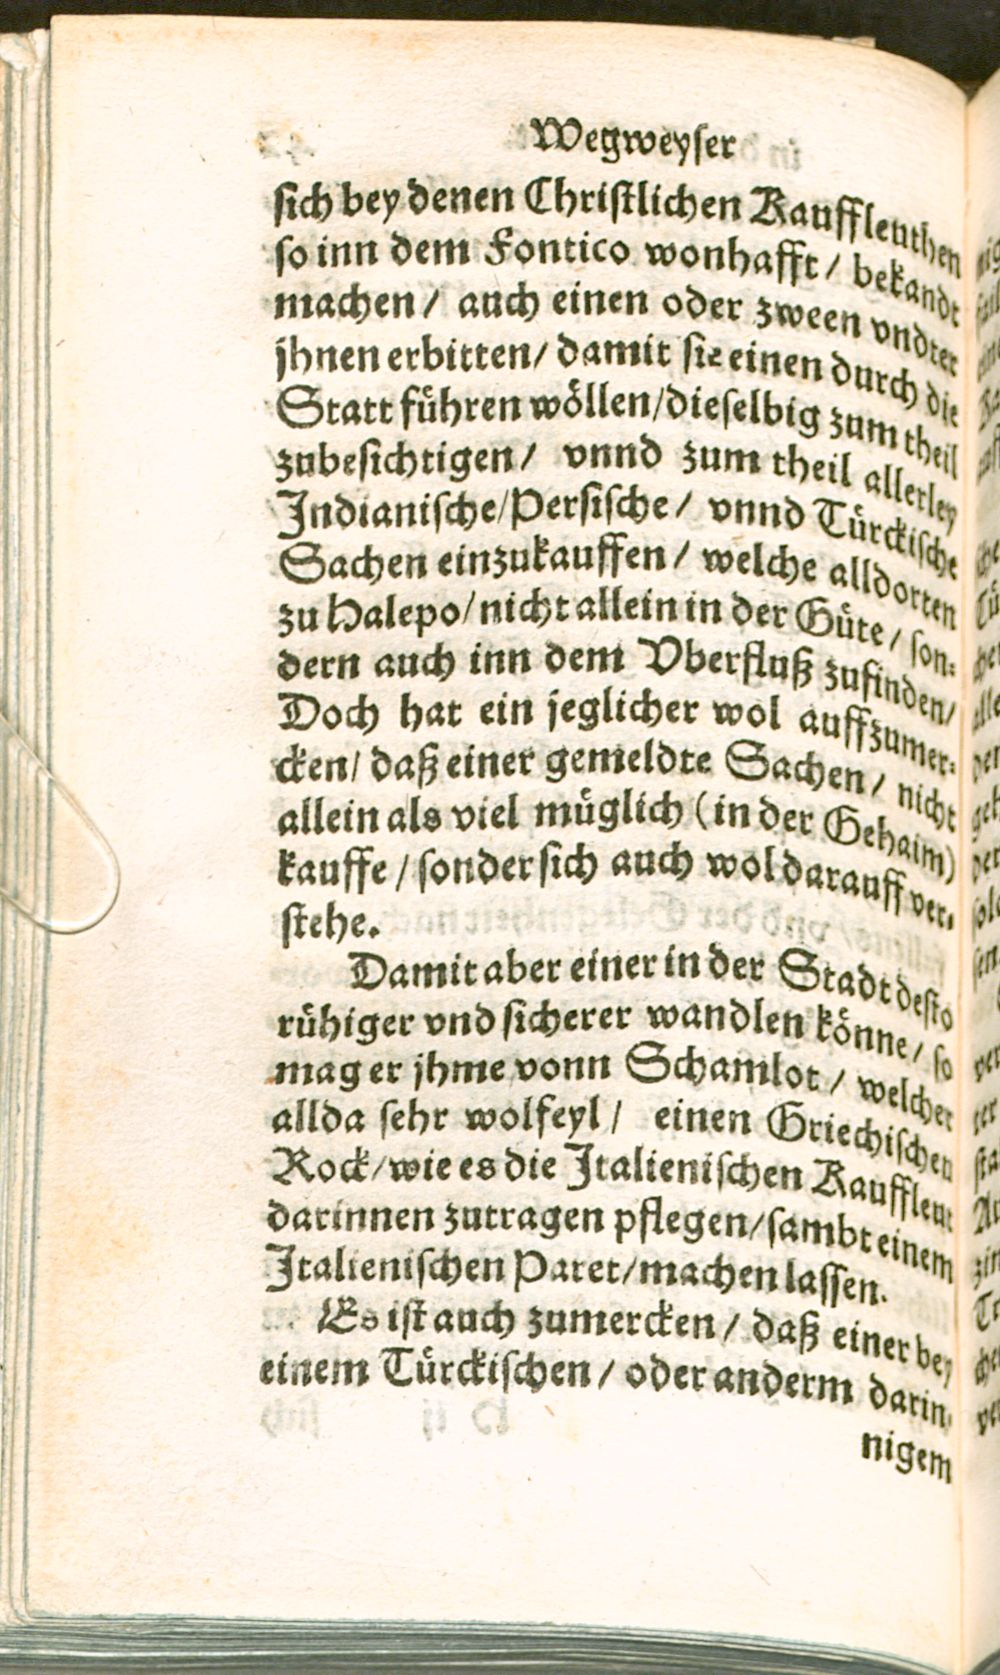 Wegweyser
sich bey denen Christlichen Kauffleuthen
so inn dem Fontico wonhafft / bekandt
machen / auch einen oder zween vndter
jhnen erbitten / damit sie einen durch die
Statt führen wöllen / dieselbig zum theil
zubesichtigen / vnnd zum theil allerley
Indianische / Persische / vnnd Türckische
Sachen einzukauffen / welche alldorten
zu Halepo / nicht allein in der Güte / son-
dern auch inn dem Vberfluß zufinden /
Doch hat ein jeglicher wol auffzumer-
cken / daß einer gemeldte Sachen / nicht
allein als viel müglich (in der Gehaim)
kauffe / sonder sich auch wol darauff ver-
stehe.
Damit aber einer in der Stadt desto
rühiger vnd sicherer wandlen könne / so
mag er jhme vonn Schamlot / welcher
allda sehr wolfeyl / einen Griechischen
Rock / wie es die Italienischen Kauffleut
darinnen zutragen pflegen / sambt einem
Italienischen Paret / machen lassen.
Es ist auch zumercken / daß einer bey
einem Türckischen / oder anderm darin-
nigem